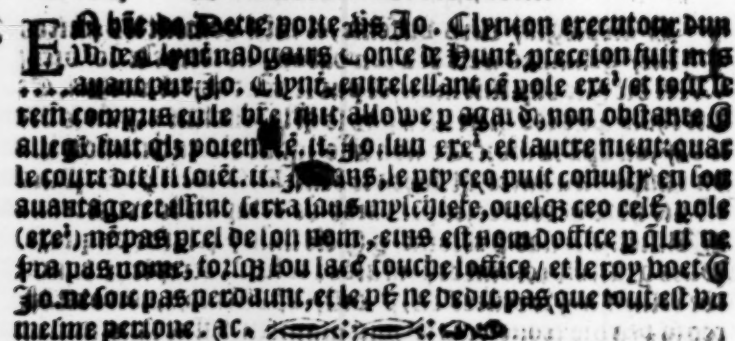 EN bře de Dette porte vs Jo. Clynton executour dun
W de Clynt nadgairs Conte de Hunt, precċion fuit mis
auant pur Jo. Clynt, entrelessant cē pole exeʳ/ et tout le
rem̄ compris en le bře, fuit allowe p agard, non obstante
alleg̃ fuit qls poient ē.ii. Jo. lun exeʳ, et lautre nient: quar
le court dit, si soiēt.ii. Johans, le pty ceo puit conustr en son
auantage, et issint serra sans myschiefe, ouesqz ceo cest pole
(exeʳ) nē pas pcel de son nom, eins est nom doffice p qil ne
sra pas nome, forsqz lou lacc̄ touche loffice/ et le roy voet
Jo. ne soit pas perdaunt, et le pł ne dedit pas que tout est vn
mesme persone. &c.